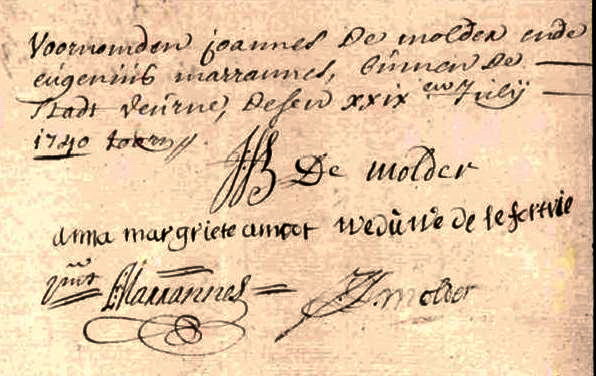 Voornomden joannes De molder ende
eugeniüs marrannes, binnen De
Stadt veürne, desen xxix en Julij
1740 toorn
De molder
anna margriete amoot wedüwe de le fortrie
Marannes
molder